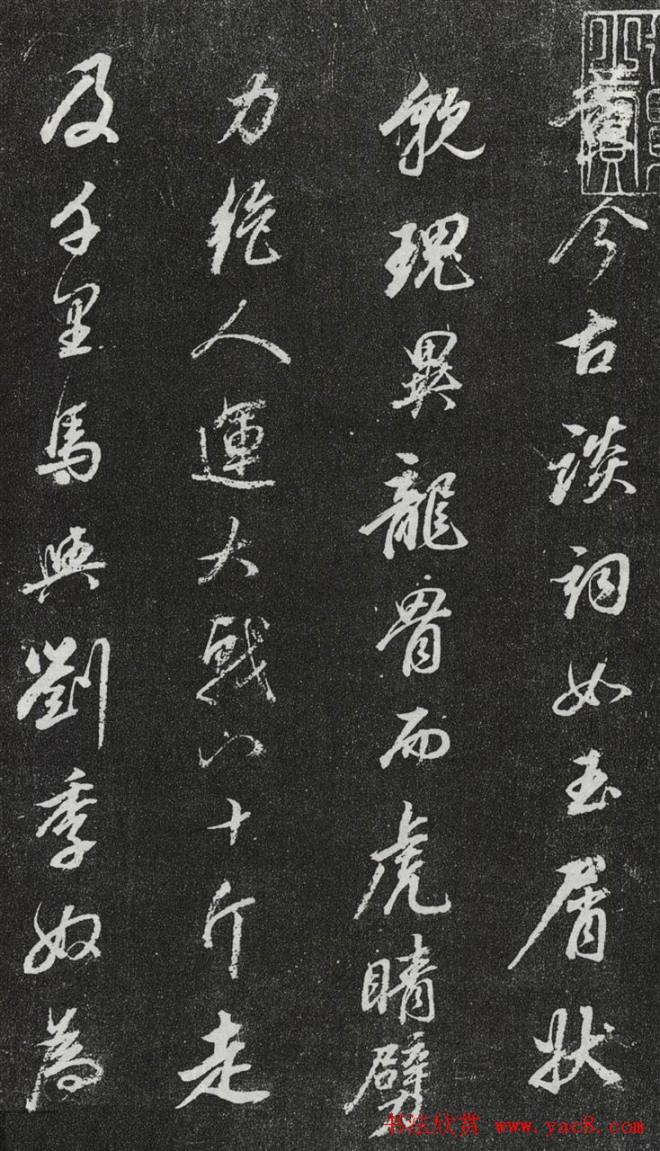 今古談詞如玉屑狀
貌瑰異龍骨而虎睛臂
力絶人運大戟八十斤走
及千里馬與劉季奴為
书法欣赏 www.yac8.com